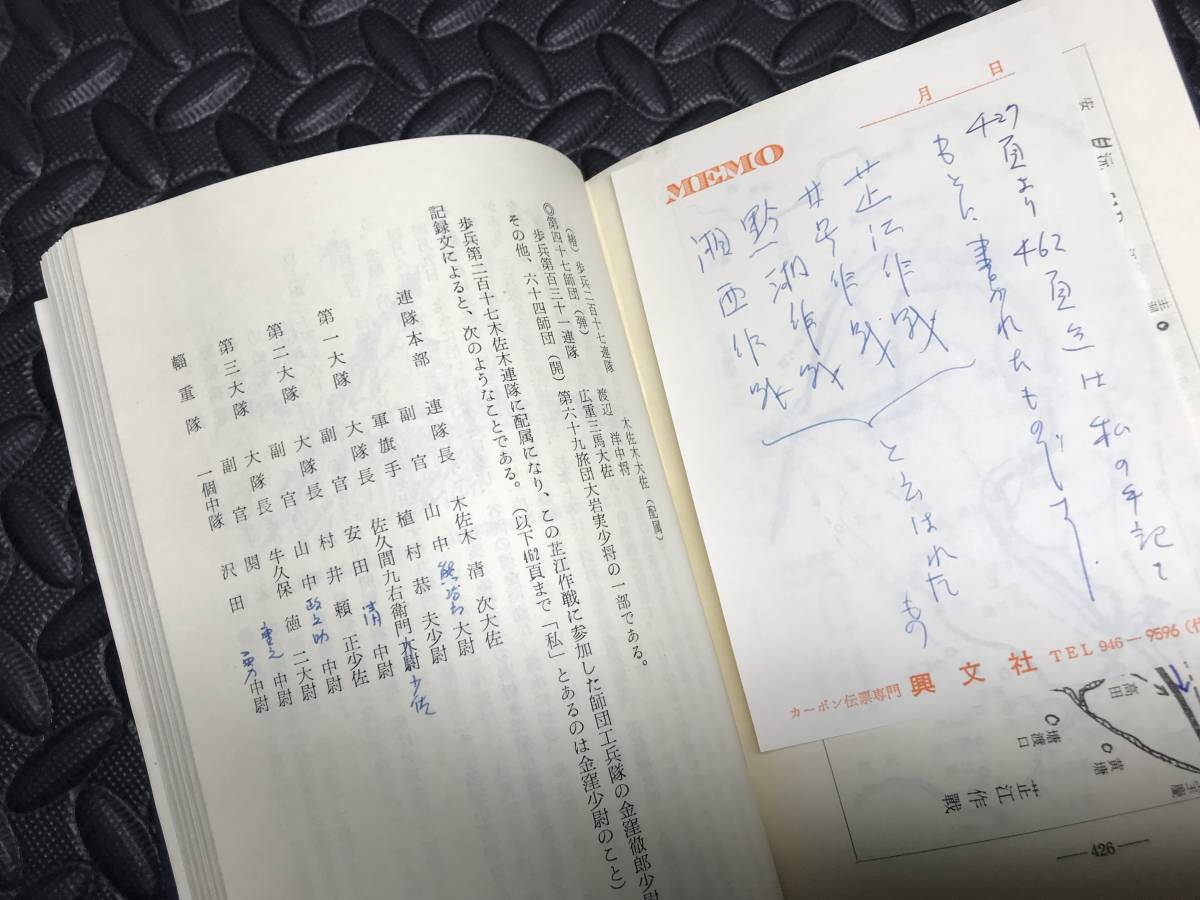 月　日
MEMO
427頁より462頁迄は私の手記を
もとに書かれたものです.
芷江作戦
廿号作戦
黔湘作戦
湘西作戦
と云はれた
もの
カーボン伝票専門 興文社 TEL 946―9596 (代
芷江作戦
塘渡口
―426―
(椿) 歩兵二百十七連隊　木佐木大佐(配属)
◎第四十七師団(弾)　渡辺　洋中将
歩兵第百三十一連隊　広重三馬大佐
その他、六十四師団(開)　第六十九旅団大岩実少将の一部である。
歩兵第二百十七木佐木連隊に配属になり、この芷江作戦に参加した師団工兵隊の金窪徹郎少尉
記録文によると、次のようなことである。(以下462頁まで「私」とあるのは金窪少尉のこと)
連隊本部　連隊長　木佐木　清次大佐
副官　山中　大尉
軍旗手　植村　恭夫少尉
第一大隊　大隊長　佐久間九右衛門大尉少佐
副官　安田　清　中尉
第二大隊　大隊長　村井　頼正少佐
副官　山中　政之助　中尉
第三大隊　大隊長　牛久保　徳二大尉
副官　関　重之　中尉
輜重隊　一個中隊　沢田　勇　中尉